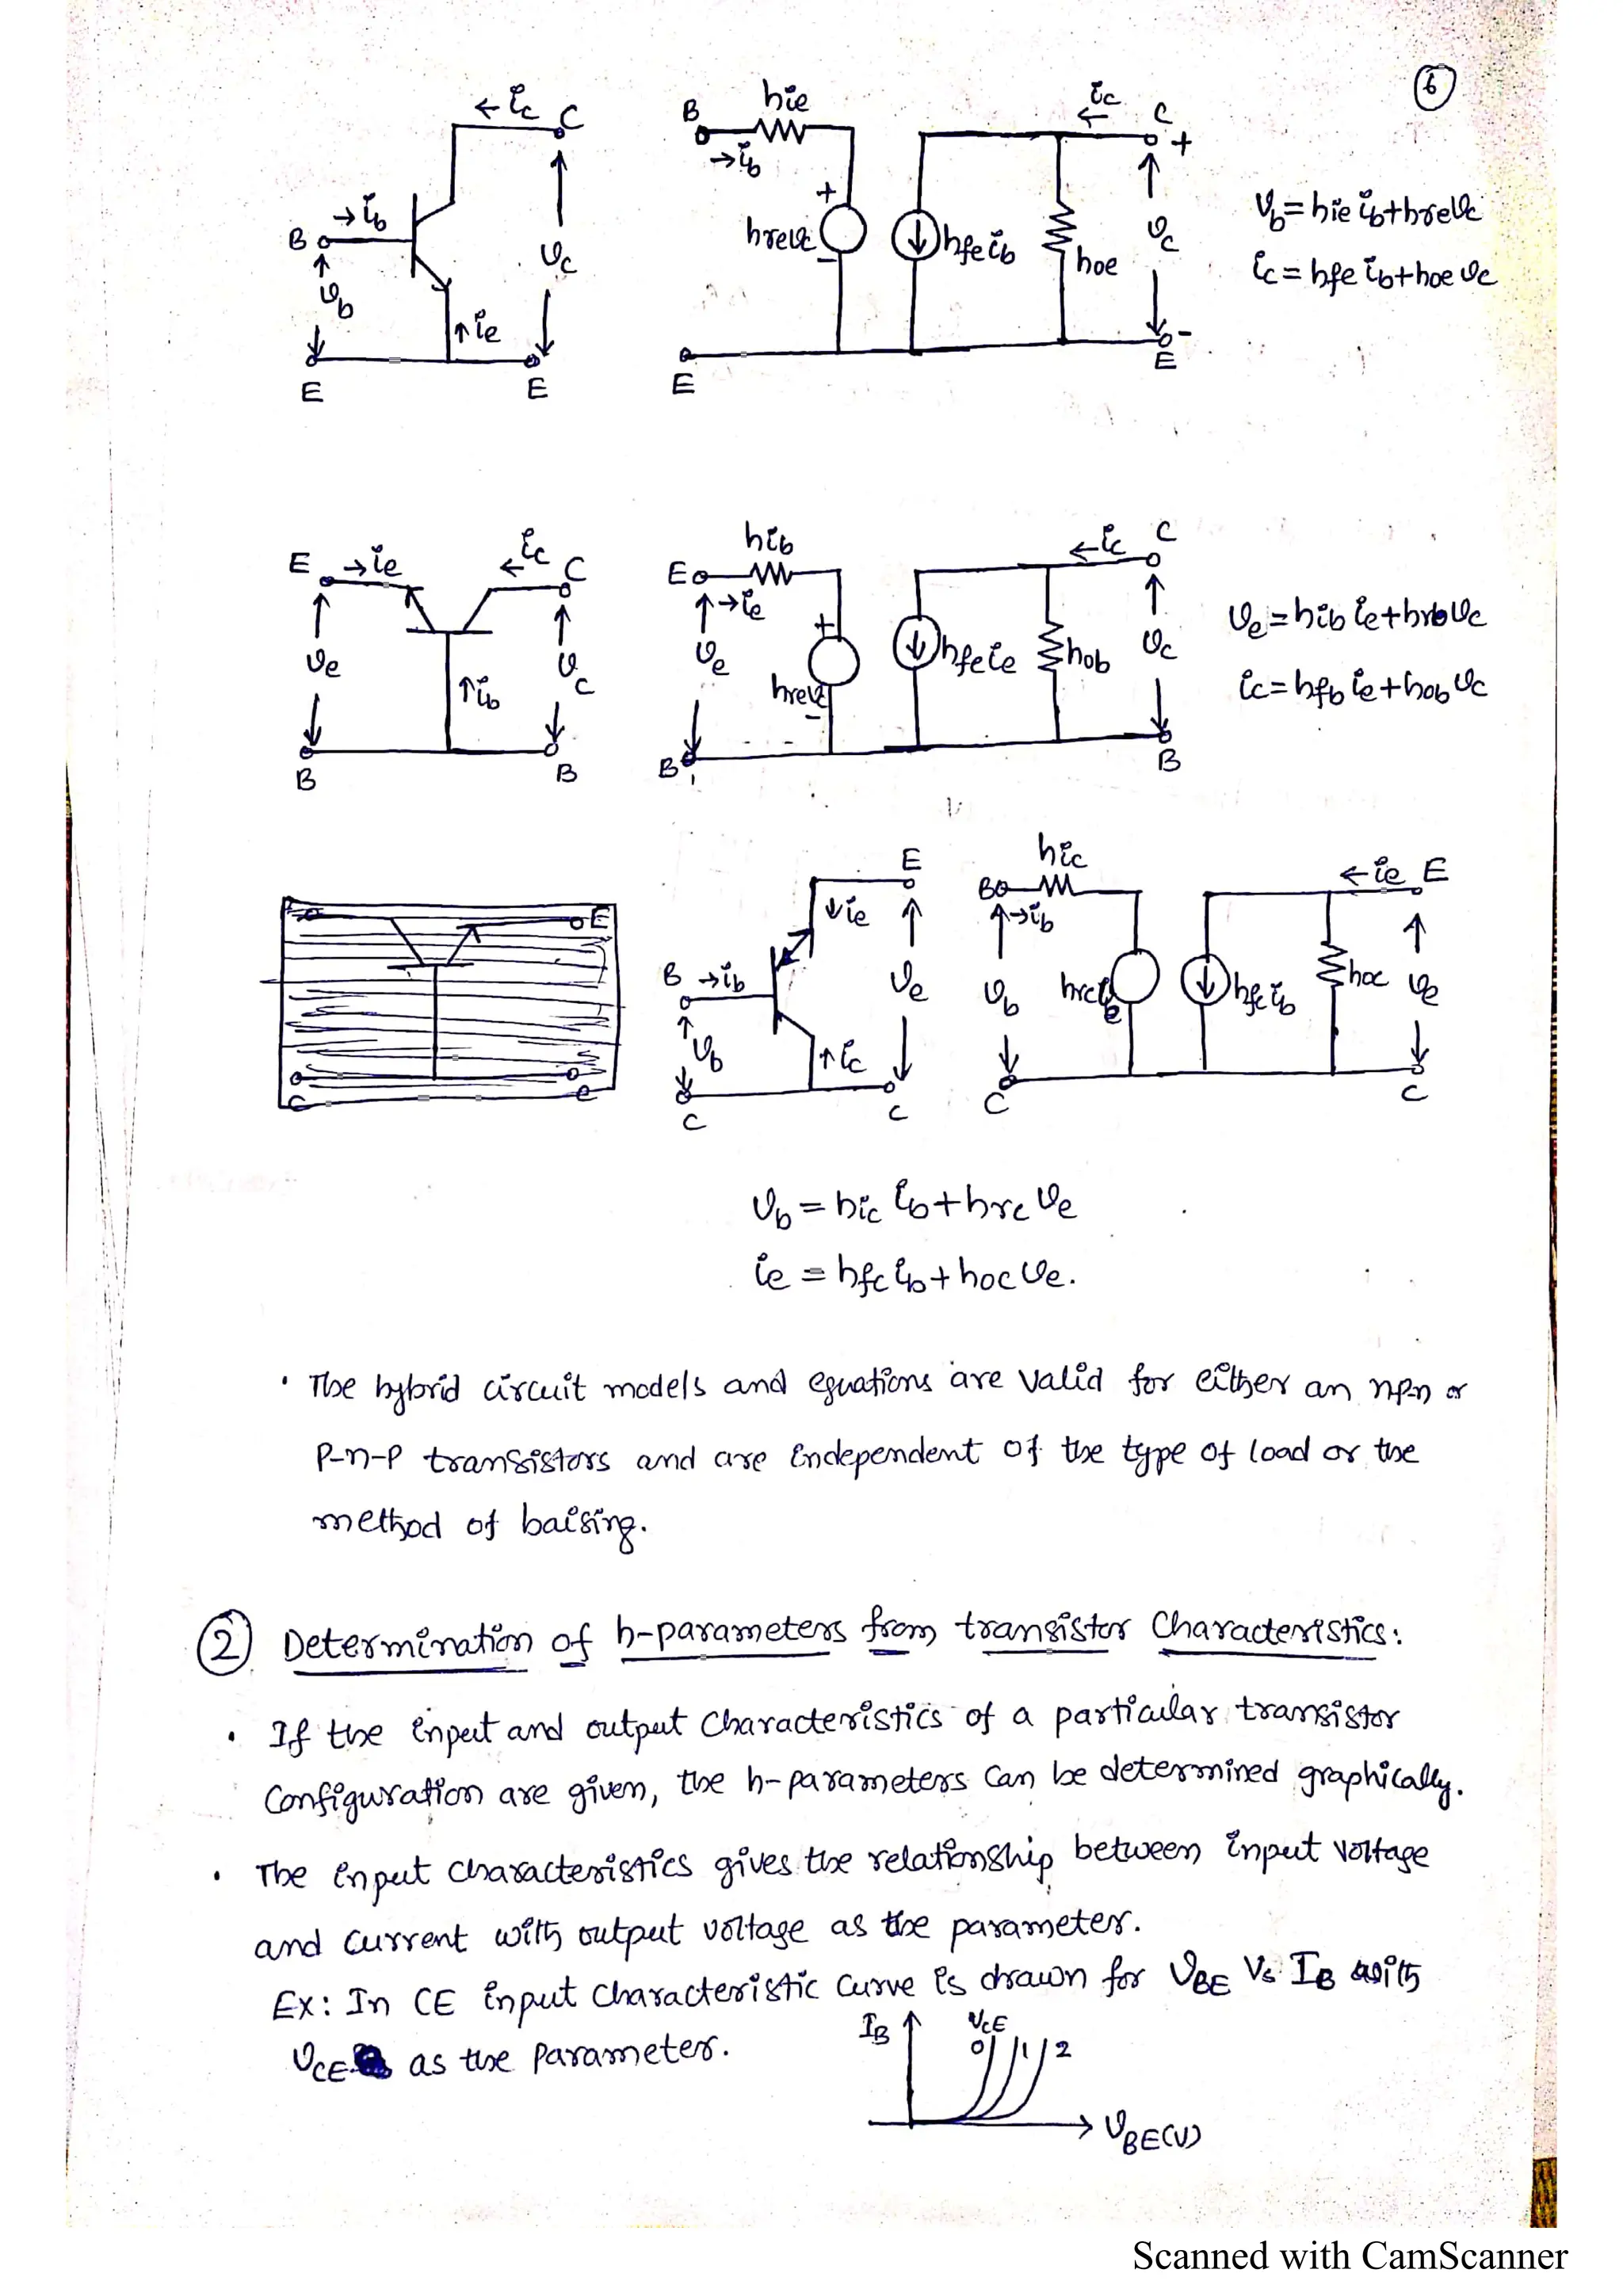 6
← ic C
B → ib
vb
vc
↑ie
E E
B hie
→ib
+
hrevc
-
hfe ib
hoe
ic
←
C
+
vc
-
E E
vb = hie ib + hre vc
ic = hfe ib + hoe vc
E → ie ← ic C
ve
vc
↑ib
B B
hib
E
→ie
ve
+
hrevc
-
hfe ie
hob
← ic C
vc
B B
ve = hib ie + hrb vc
ic = hfb ie + hob vc
E
C e
E
↓ie
B → ib
vb
ve
↑ic
C C
hic
B
→ib
vb
hrc ve
hfc ib
hoc
← ie E
ve
C C
vb = hic ib + hrc ve
ie = hfc ib + hoc ve.
• The hybrid circuit models and equations are valid for either an npn or
P-n-P transistors and are independent of the type of load or the
method of baising.
② Determination of h-parameters from transistor Characteristics:
• If the input and output Characteristics of a particular transistor
Configuration are given, the h-parameters Can be determined graphically.
• The input characteristics gives the relationship between input voltage
and current with output voltage as the parameter.
Ex: In CE input characteristic curve is drawn for VBE Vs IB with
VCE as the parameter.
IB
VCE
0 1 2
VBE(V)
Scanned with CamScanner